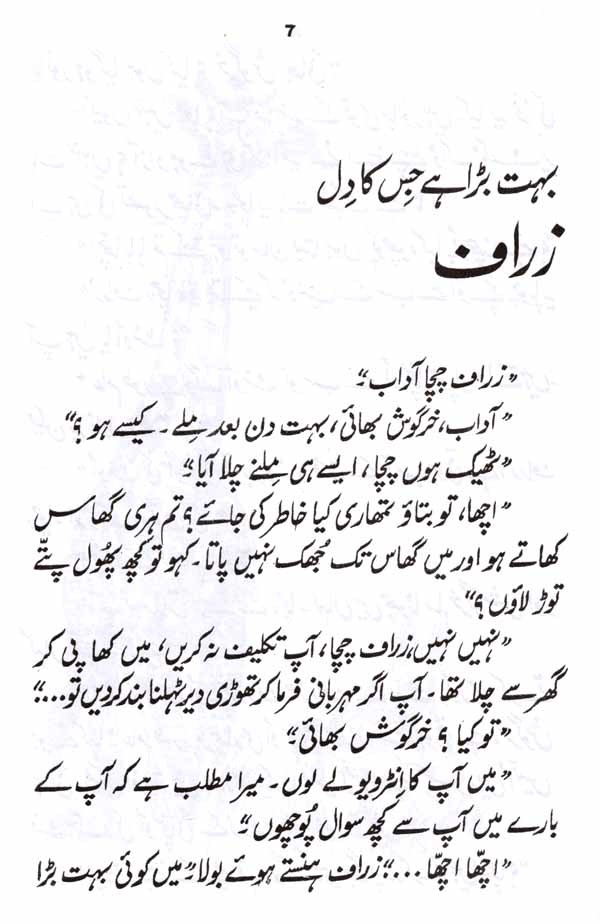 7
بہت بڑا ہے جِس کا دِل
زراف
”زراف چچا آداب۔“
”آداب، خرگوش بھائی، بہت دن بعد مِلے۔ کیسے ہو؟“
”ٹھیک ہوں چچا، ایسے ہی مِلنے چلا آیا۔“
”اچھا، تو بتاؤ تمھاری کیا خاطر کی جائے؟ تم ہری گھاس
کھاتے ہو اور میں گھاس تک جُھک نہیں پاتا۔ کہو تو کچھ پھُول پتّے
توڑ لاؤں؟“
”نہیں نہیں، زراف چچا، آپ تکلیف نہ کریں، میں کھا پی کر
گھر سے چلا تھا۔ آپ اگر مہربانی فرما کر تھوڑی دیر ٹہلنا بند کر دیں تو...۔“
”تو کیا؟ خرگوش بھائی۔“
”میں آپ کا اِنٹرویو لے لوں۔ میرا مطلب ہے کہ آپ کے
بارے میں آپ سے کچھ سوال پُوچھوں۔“
”اچّھا اچّھا...۔“ زراف ہنستے ہوئے بولا۔ ”میں کوئی بہت بڑا